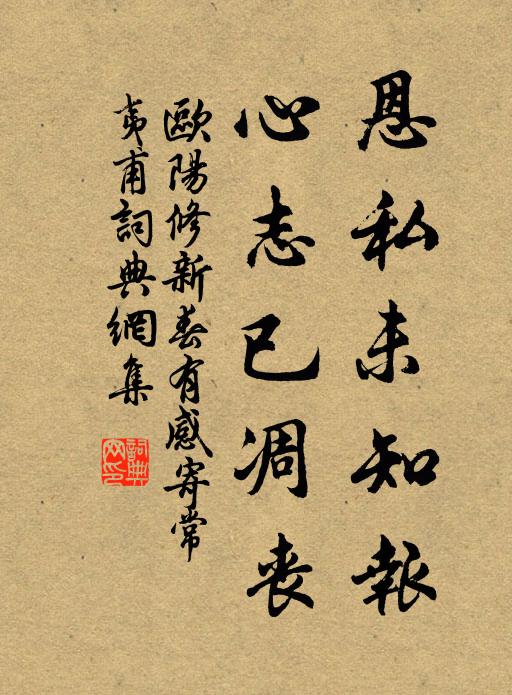 恩私未知報
心志已凋喪
歐陽修新春有感寄常
夷甫詞典網集
詞典網印